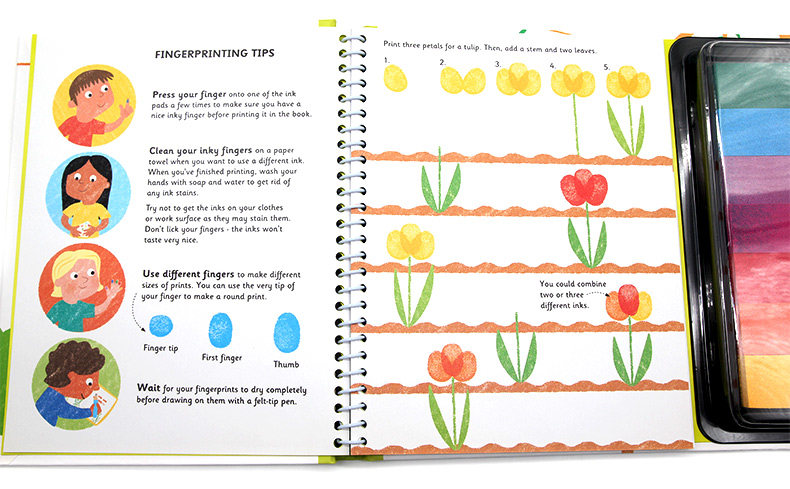 FINGERPRINTING TIPS
Press your finger onto one of the ink
pads a few times to make sure you have a
nice inky finger before printing it in the book.
Clean your inky fingers on a paper
towel when you want to use a different ink.
When you've finished printing, wash your
hands with soap and water to get rid of
any ink stains.
Try not to get the inks on your clothes
or work surface as they may stain them.
Don't lick your fingers - the inks won't
taste very nice.
Use different fingers to make different
sizes of prints. You can use the very tip of
your finger to make a round print.
Finger tip
First finger
Thumb
Wait for your fingerprints to dry completely
before drawing on them with a felt-tip pen.
Print three petals for a tulip. Then, add a stem and two leaves.
1. 2. 3. 4. 5.
You could combine
two or three
different inks.